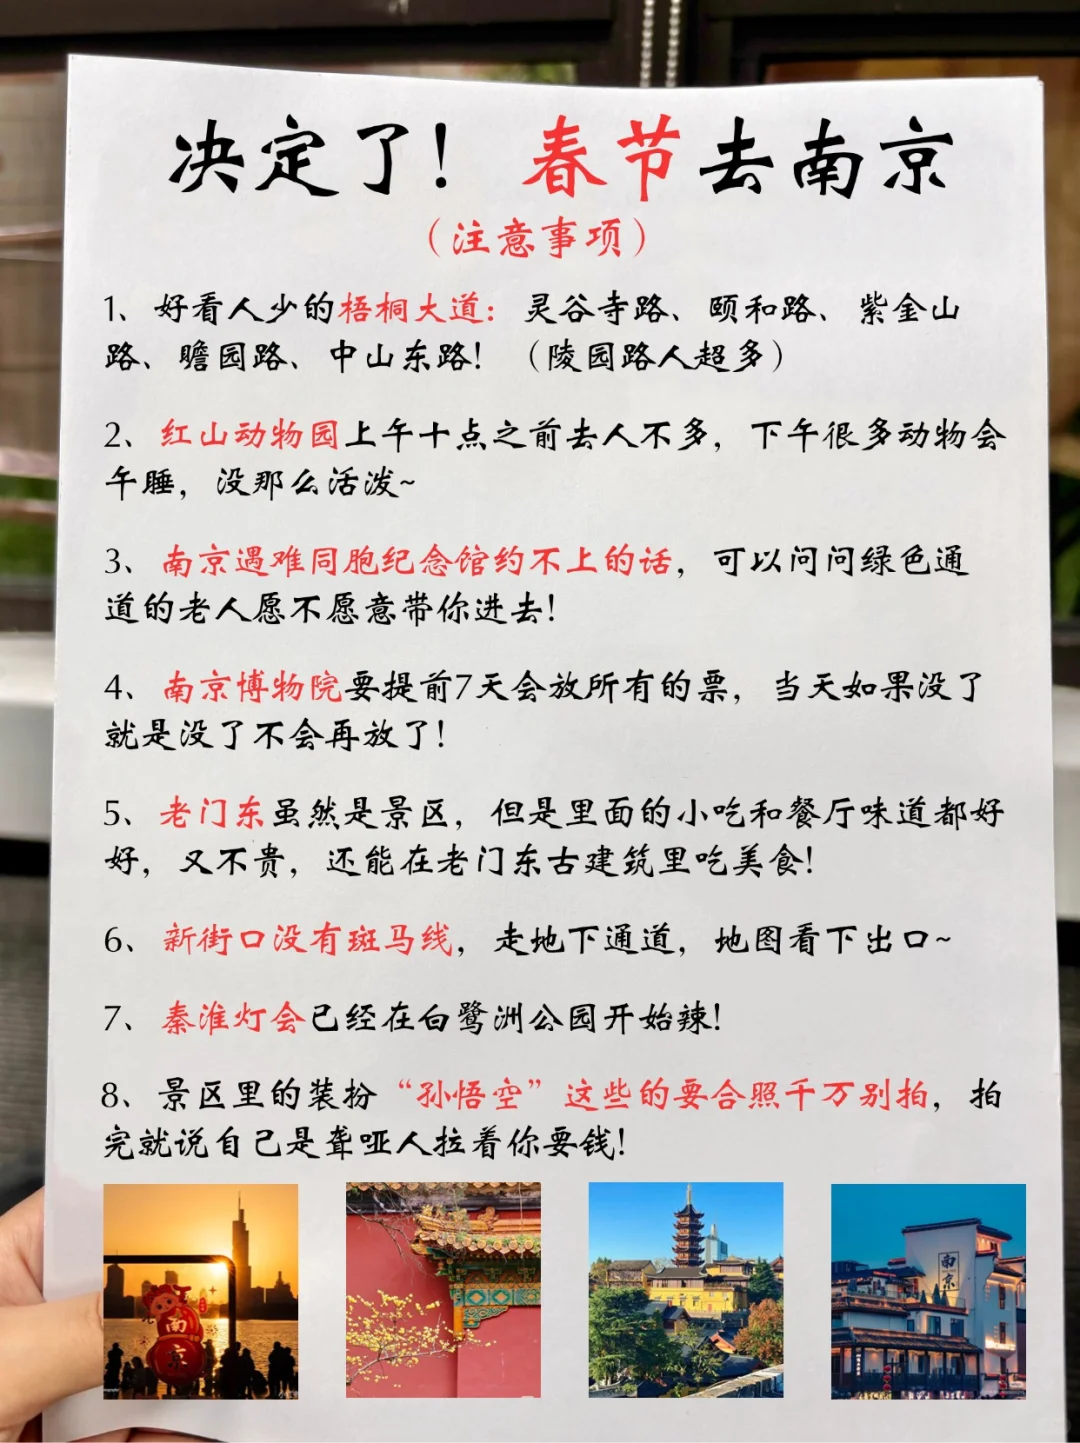 决定了！春节去南京
（注意事项）
1、好看人少的梧桐大道：灵谷寺路、颐和路、紫金山
路、瞻园路、中山东路！（陵园路人超多）
2、红山动物园上午十点之前去人不多，下午很多动物会
午睡，没那么活泼~
3、南京遇难同胞纪念馆约不上的话，可以问问绿色通
道的老人愿不愿意带你进去！
4、南京博物院要提前7天会放所有的票，当天如果没了
就是没了不会再放了！
5、老门东虽然是景区，但是里面的小吃和餐厅味道都好
好，又不贵，还能在老门东古建筑里吃美食！
6、新街口没有斑马线，走地下通道，地图看下出口~
7、秦淮灯会已经在白鹭洲公园开始辣！
8、景区里的装扮“孙悟空”这些的要合照千万别拍，拍
完就说自己是聋哑人拉着你要钱！
南
京
南
京